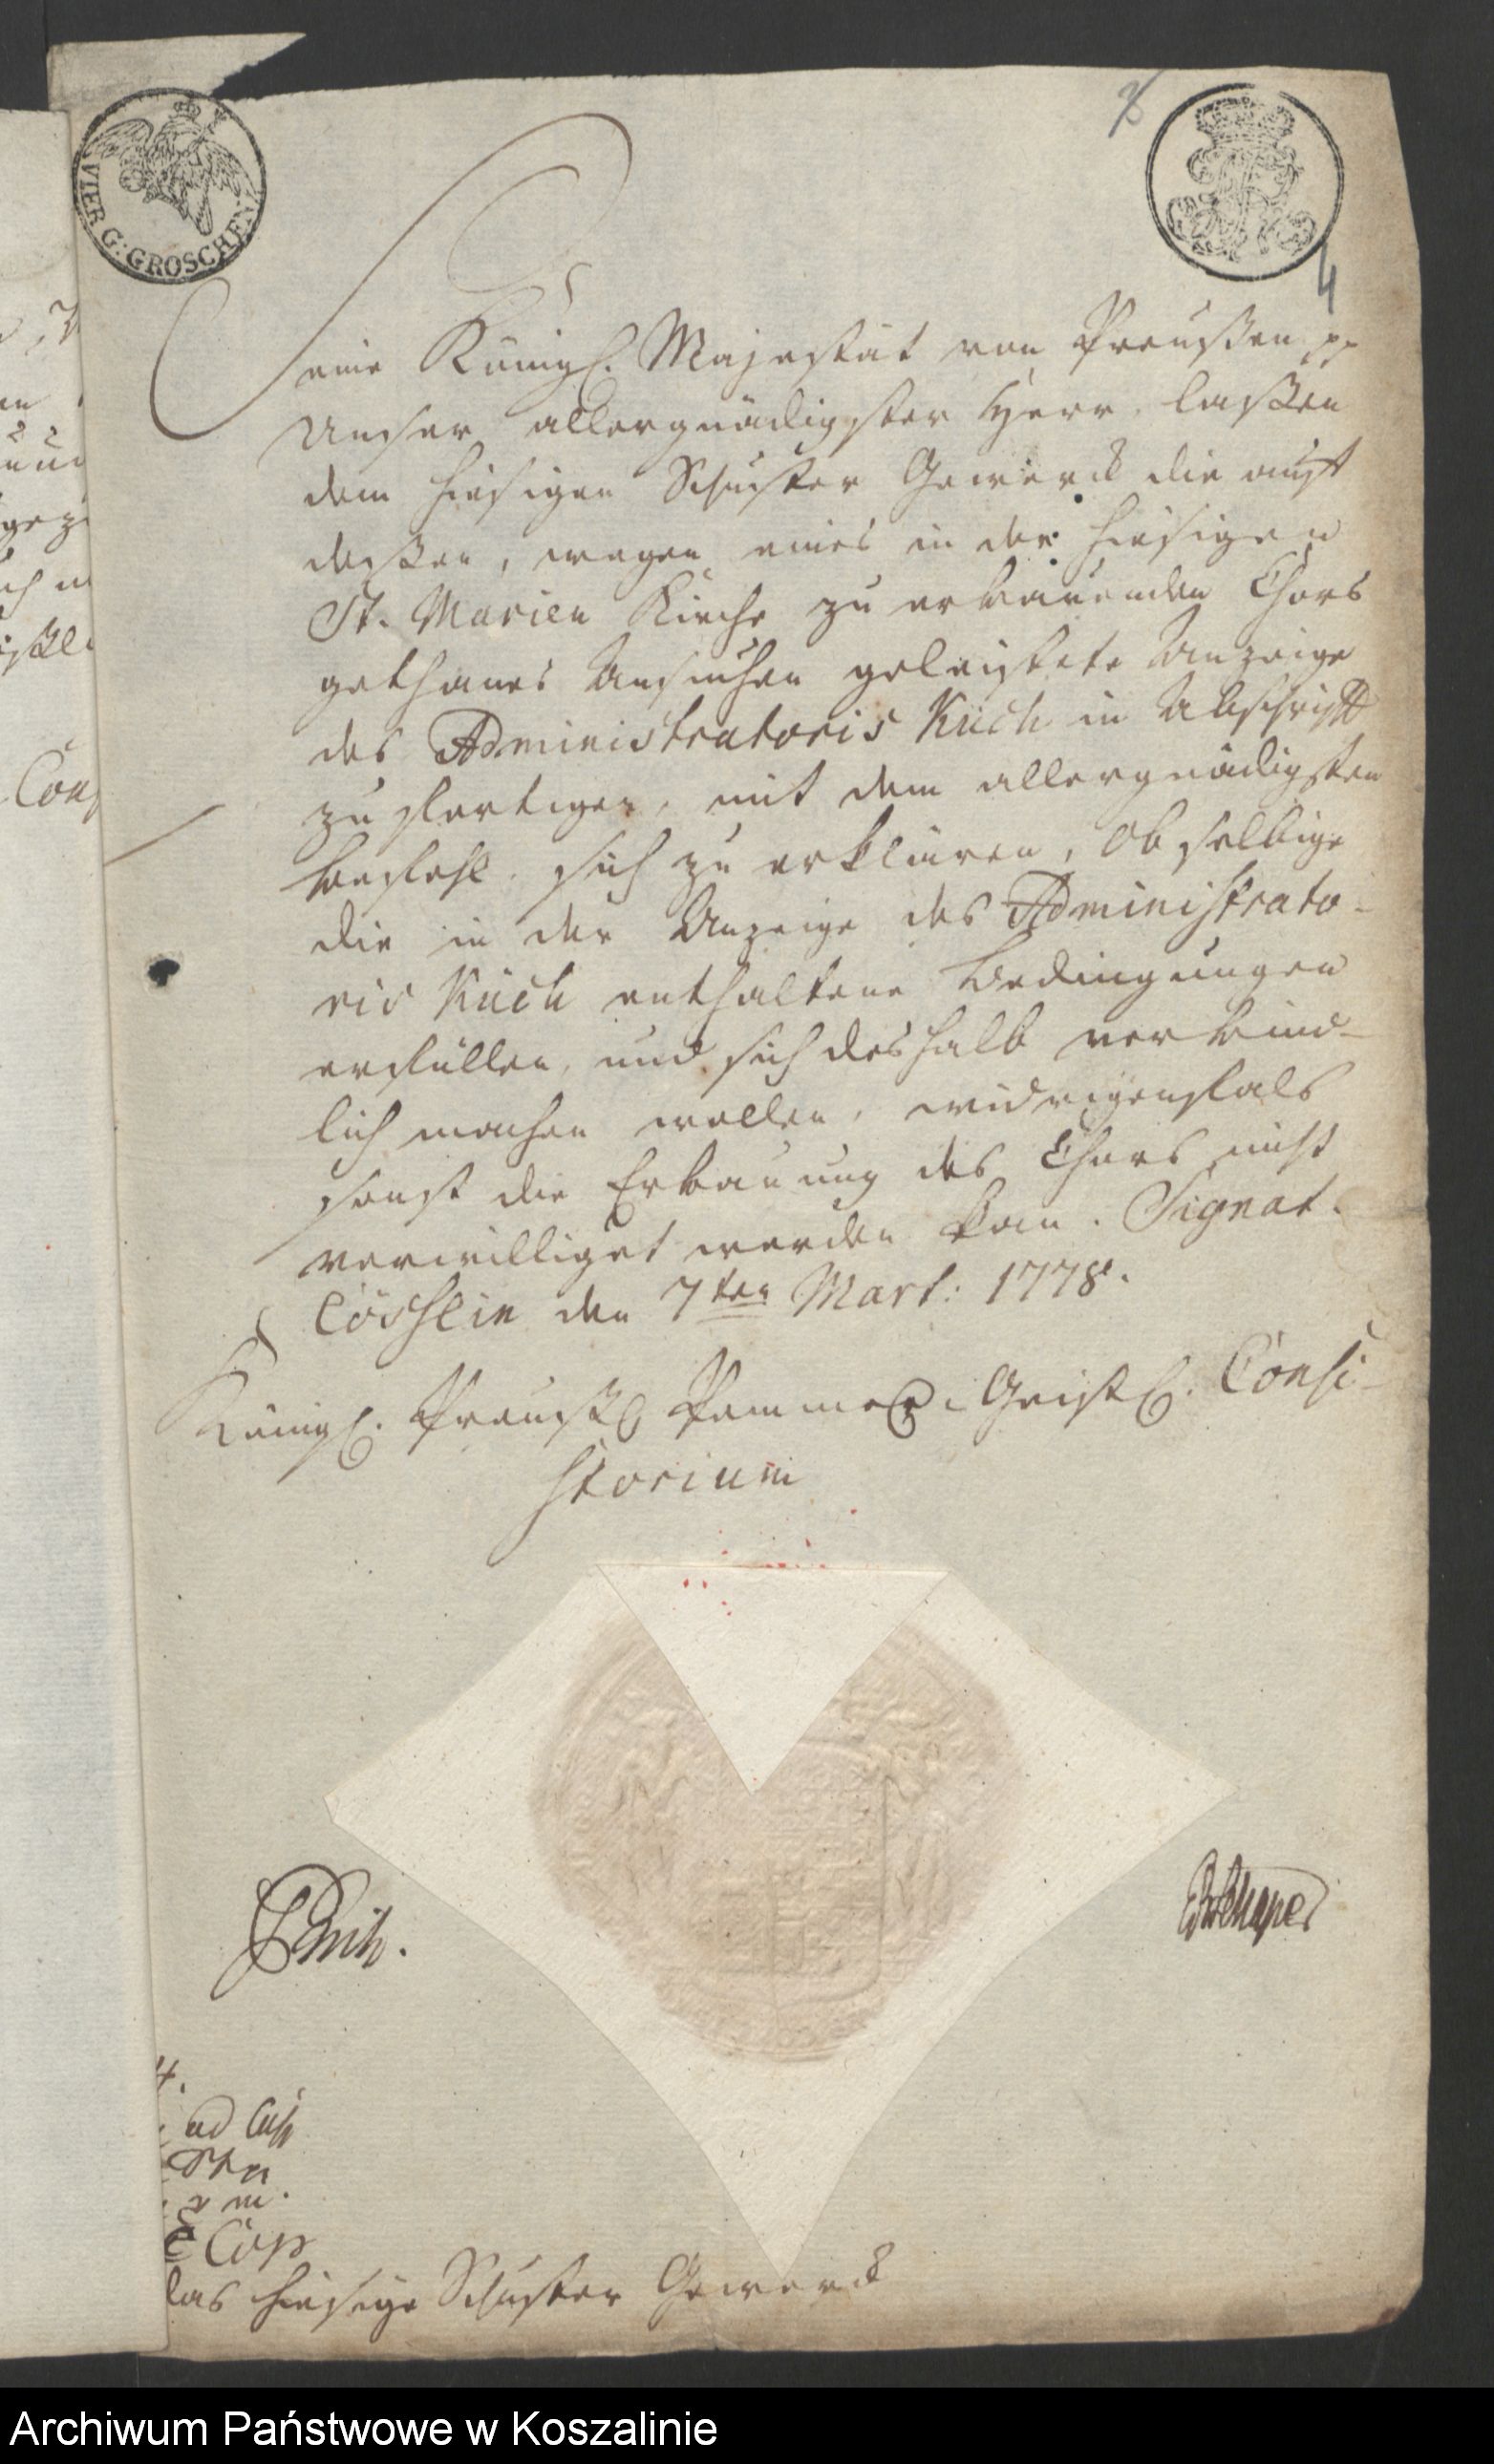 VIER G: GROSCHEN
4
Seine Königl. Majestät von Preußen pp
Unser allergnädigster Herr, laßen
dem hiesigen Schuster Gewerck die auff
deßen, wegen eines in der hiesigen
St. Marien Kirche zu erbauenden Chors
gethanes Ansuchen geleistete Anzeige
des Administratoris Küch in Abschrifft
zufertigen, mit dem allergnädigsten
Befehl, sich zu erklären, Ob selbige
die in der Anzeige des Administrato-
ris Küch enthaltene Bedingungen
erfüllen, und sich deshalb verbind-
lich machen wollen, widrigenfals
sonst die Erbauung des Chors nicht
verwilliget werden kan. Signat.
Cößlin den 7ten Mart: 1778.
Königl. Preußl Pommer. Geistl. Consi-
storium
ad
Cop
das hiesige Schuster Gewerck
Archiwum Państwowe w Koszalinie